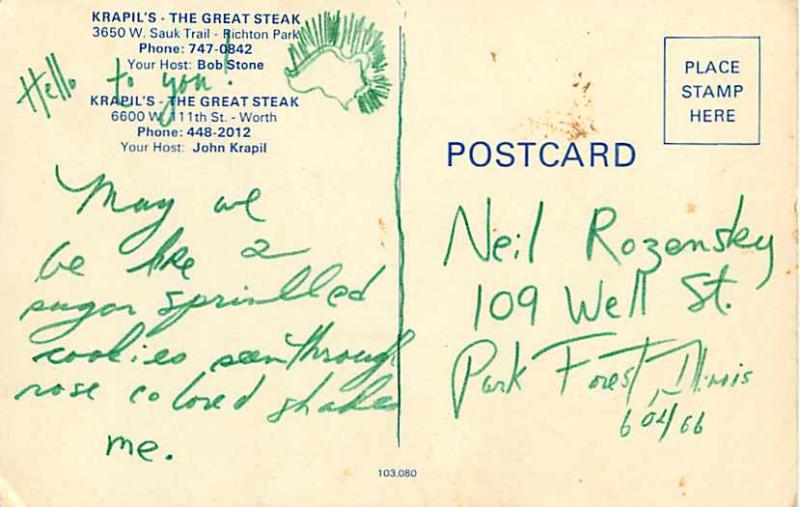 KRAPIL'S - THE GREAT STEAK
3650 W. Sauk Trail - Richton Park
Phone: 747-0842
Your Host: Bob Stone
Hello to you!
KRAPIL'S - THE GREAT STEAK
6600 W. 111th St. - Worth
Phone: 448-2012
Your Host: John Krapil
May we
be like 2
sugar sprinlled
cookies seen through
rose colored shades
me.
PLACE
STAMP
HERE
POSTCARD
Neil Rozensky
109 Well St.
Park Forest, Illinois
60466
103,080